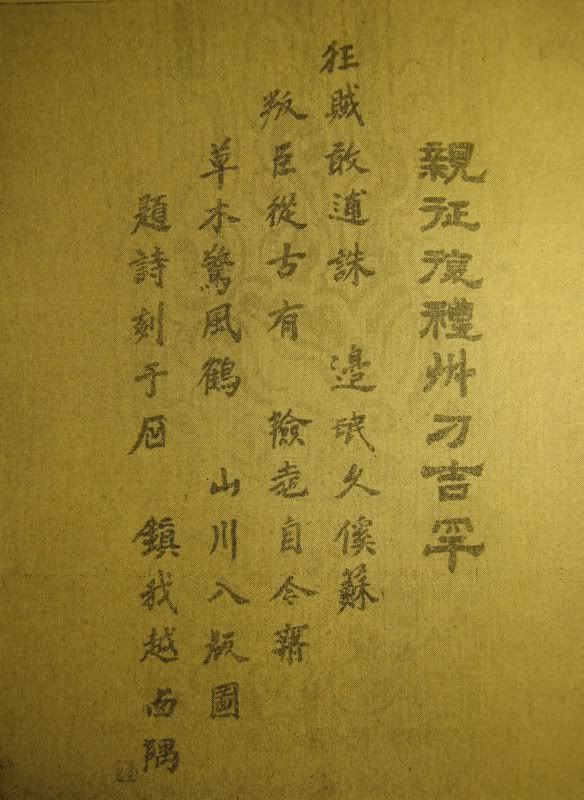 親征復禮州刁吉罕
狂賊敢逋誅 邊氓久傒蘇
叛臣從古有 險自今無
草木驚風鶴 山川入版圖
題詩刻于石 鎮我越西隅